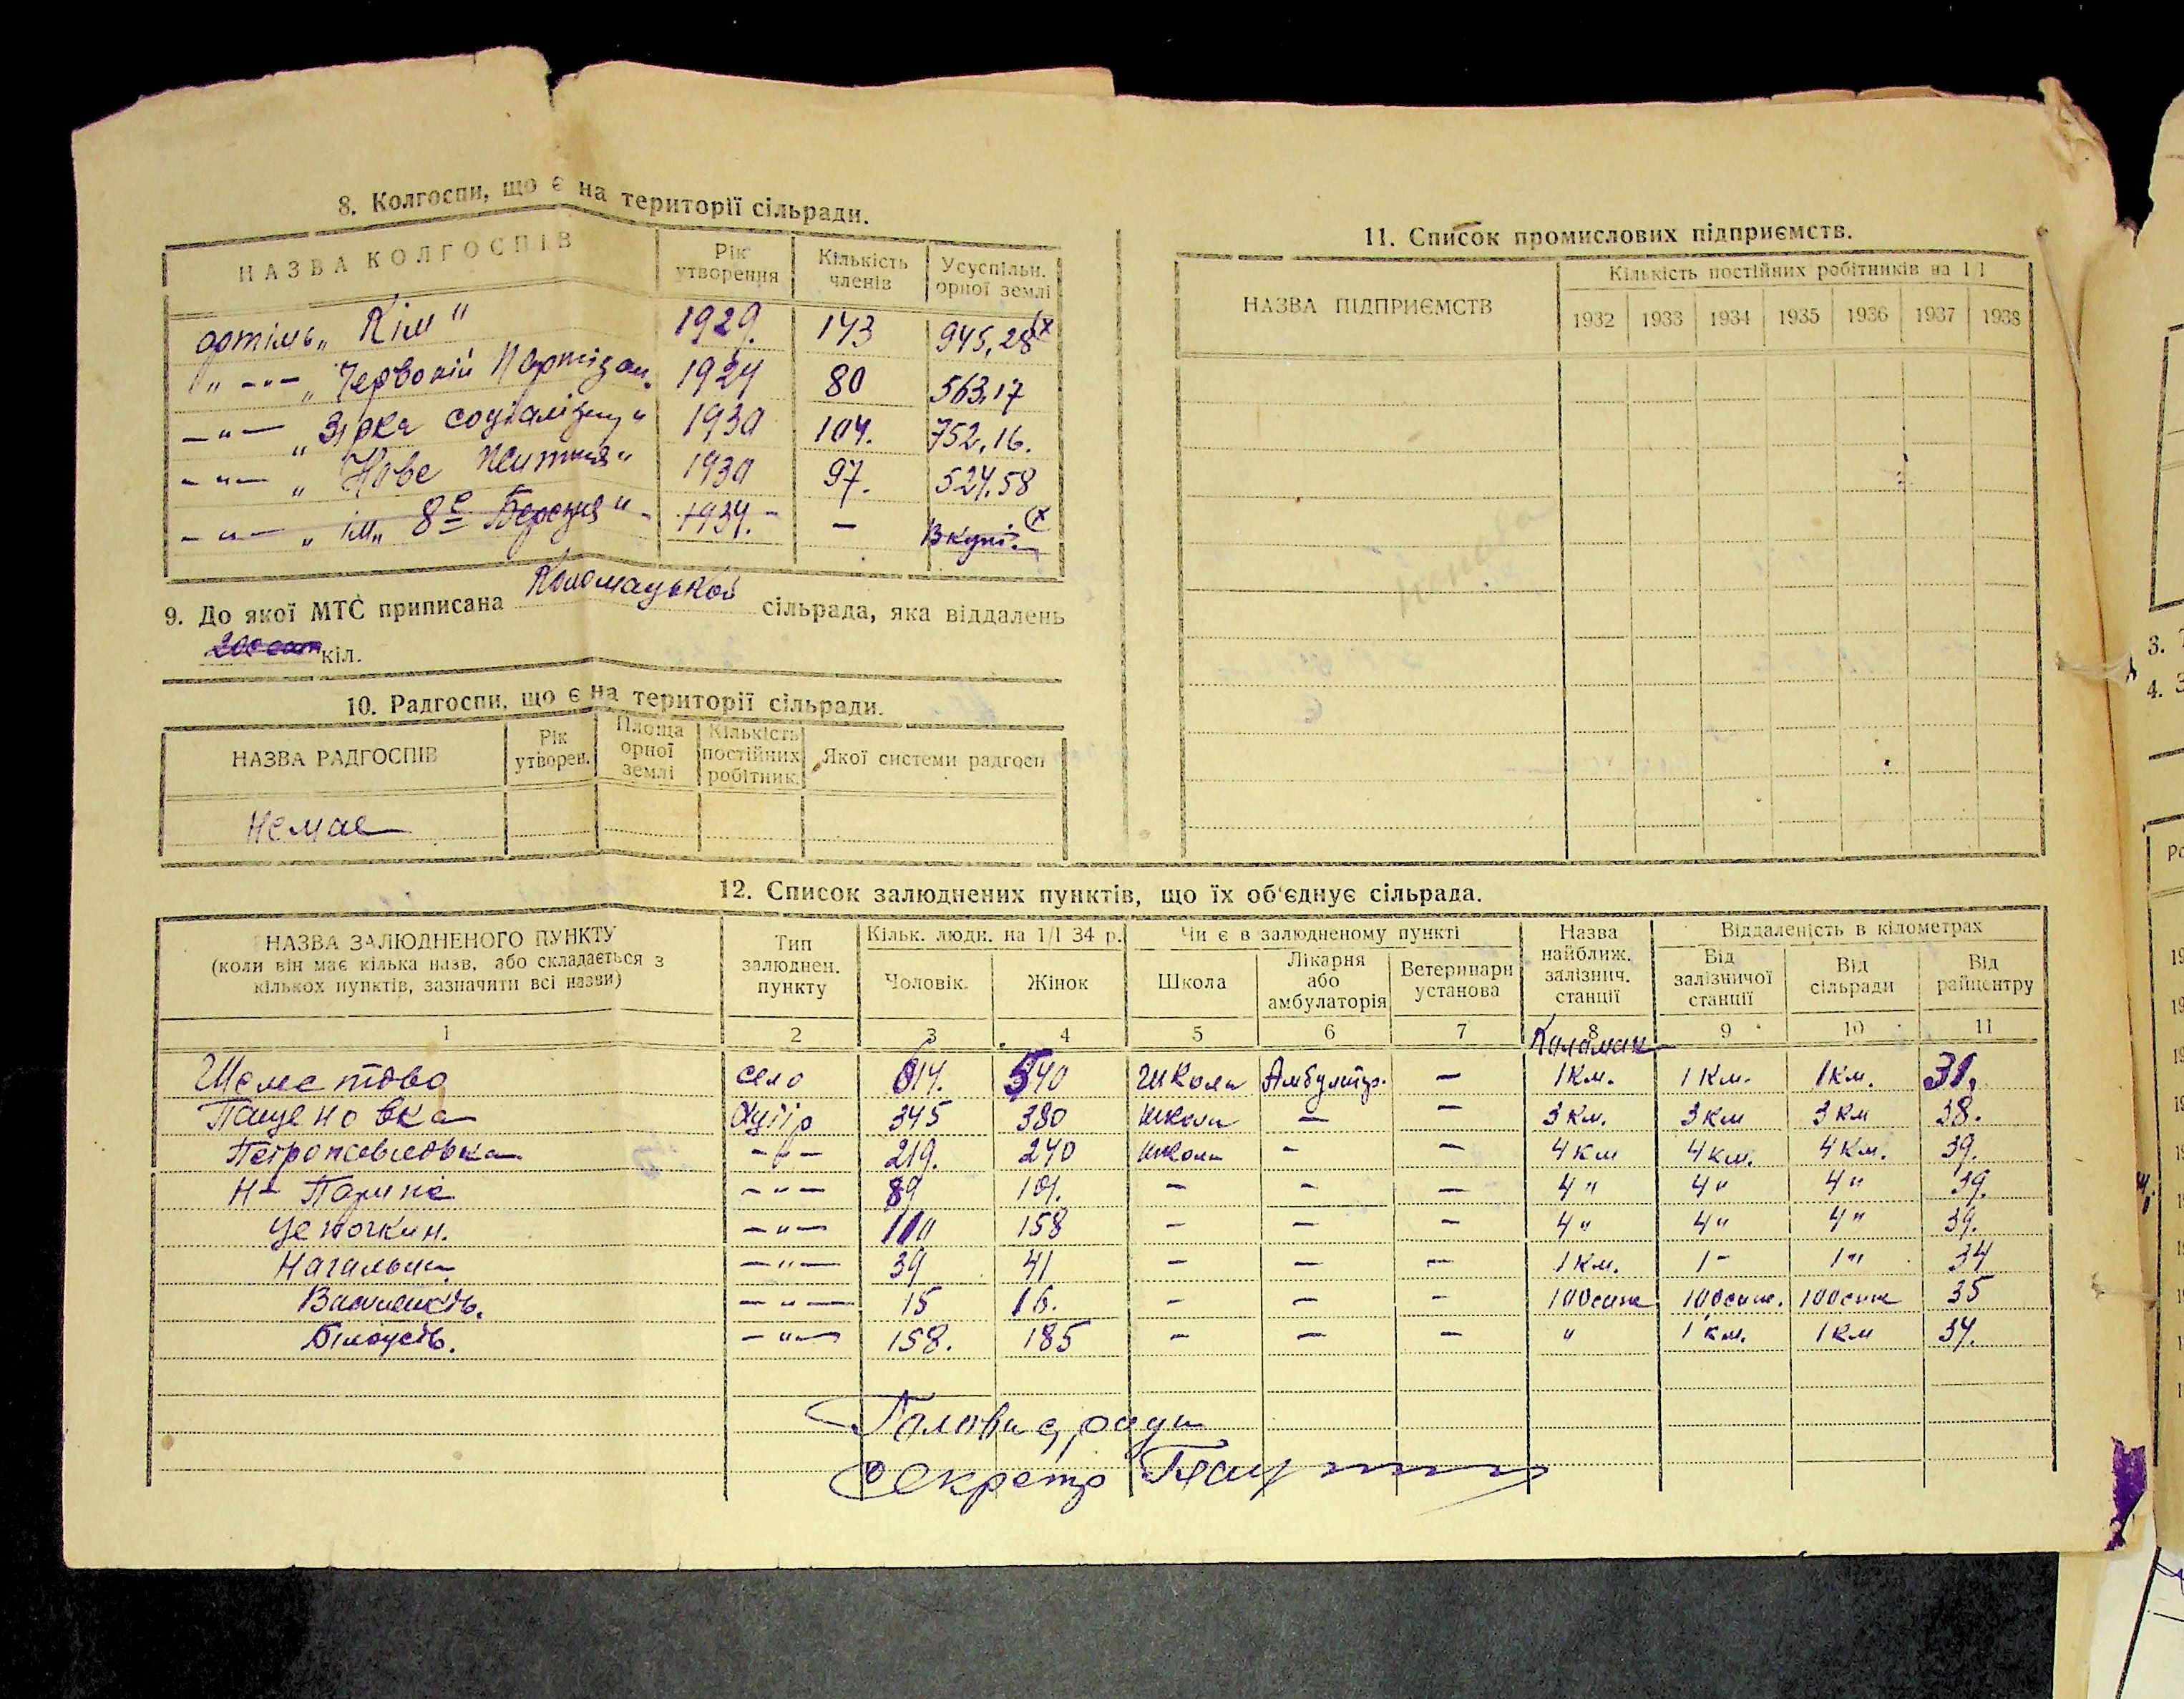 8. Колгоспи, що є на території сільради.
НАЗВА КОЛГОСПІВ Рік утворення Кількість членів Усуспільн. орної землі
артіль „Кім“ 1929. 143 945,28 (х
„ -„- „Червоний Партізан. 1924 80 563,17
-„- „Зірка соціалізму“ 1930 104. 752,16.
-„- „Нове Життя“ 1930 97. 524.58
-„- „ім„ 8е Березня“ - 1934. - — Вкупі. (х
9. До якої МТС приписана Коломацькой сільрада, яка віддалень
кіл.
10. Радгоспи, що є на території сільради.
НАЗВА РАДГОСПІВ Рік утворен. Площа орної землі Кількість постійних робітник. Якої системи радгосп
Немає
11. Список промислових підприємств.
НАЗВА ПІДПРИЄМСТВ Кількість постійних робітників на 1/1
1932 1933 1934 1935 1936 1937 1938
12. Список залюднених пунктів, що їх об'єднує сільрада.
НАЗВА ЗАЛЮДНЕНОГО ПУНКТУ Тип залюднен. пункту Кільк. людн. на 1/I 34 р. Чи є в залюдненому пункті Назва найближ. залізнич. станції Віддаленість в кілометрах
(коли він має кілька назв, або складається з кількох пунктів, зазначити всі назви) Чоловік. Жінок Школа Лікарня або амбулаторія Ветеринарн установа Від залізничої станції Від сільради Від райцентру
1 2 3 4 5 6 7 8 9 10 11
Коломак
Шелестово село 614. 540 Школа Амбулатор. — 1 км. 1 км. 1 км. 31,
Пащеновка Хутір 345 380 школа — — 3 км. 3 км 3 км 38.
Петропавловка -„- 219. 240 школа - — 4 км 4 км. 4 км. 39.
-„- 89 101. - - — 4 „ 4 „ 4 „ 39.
-„- 110 158 - — - 4 „ 4 „ 4 „ 39.
-„- 39 41 - — — 1 км. 1 - 1 „ 34
-„- 15 16. - — - 100 саж 100 саж. 100 саж 35
Білоусів. -„- 158. 185 - — — „ 1 км. 1 км 34.
Голова с/ради
Секретр